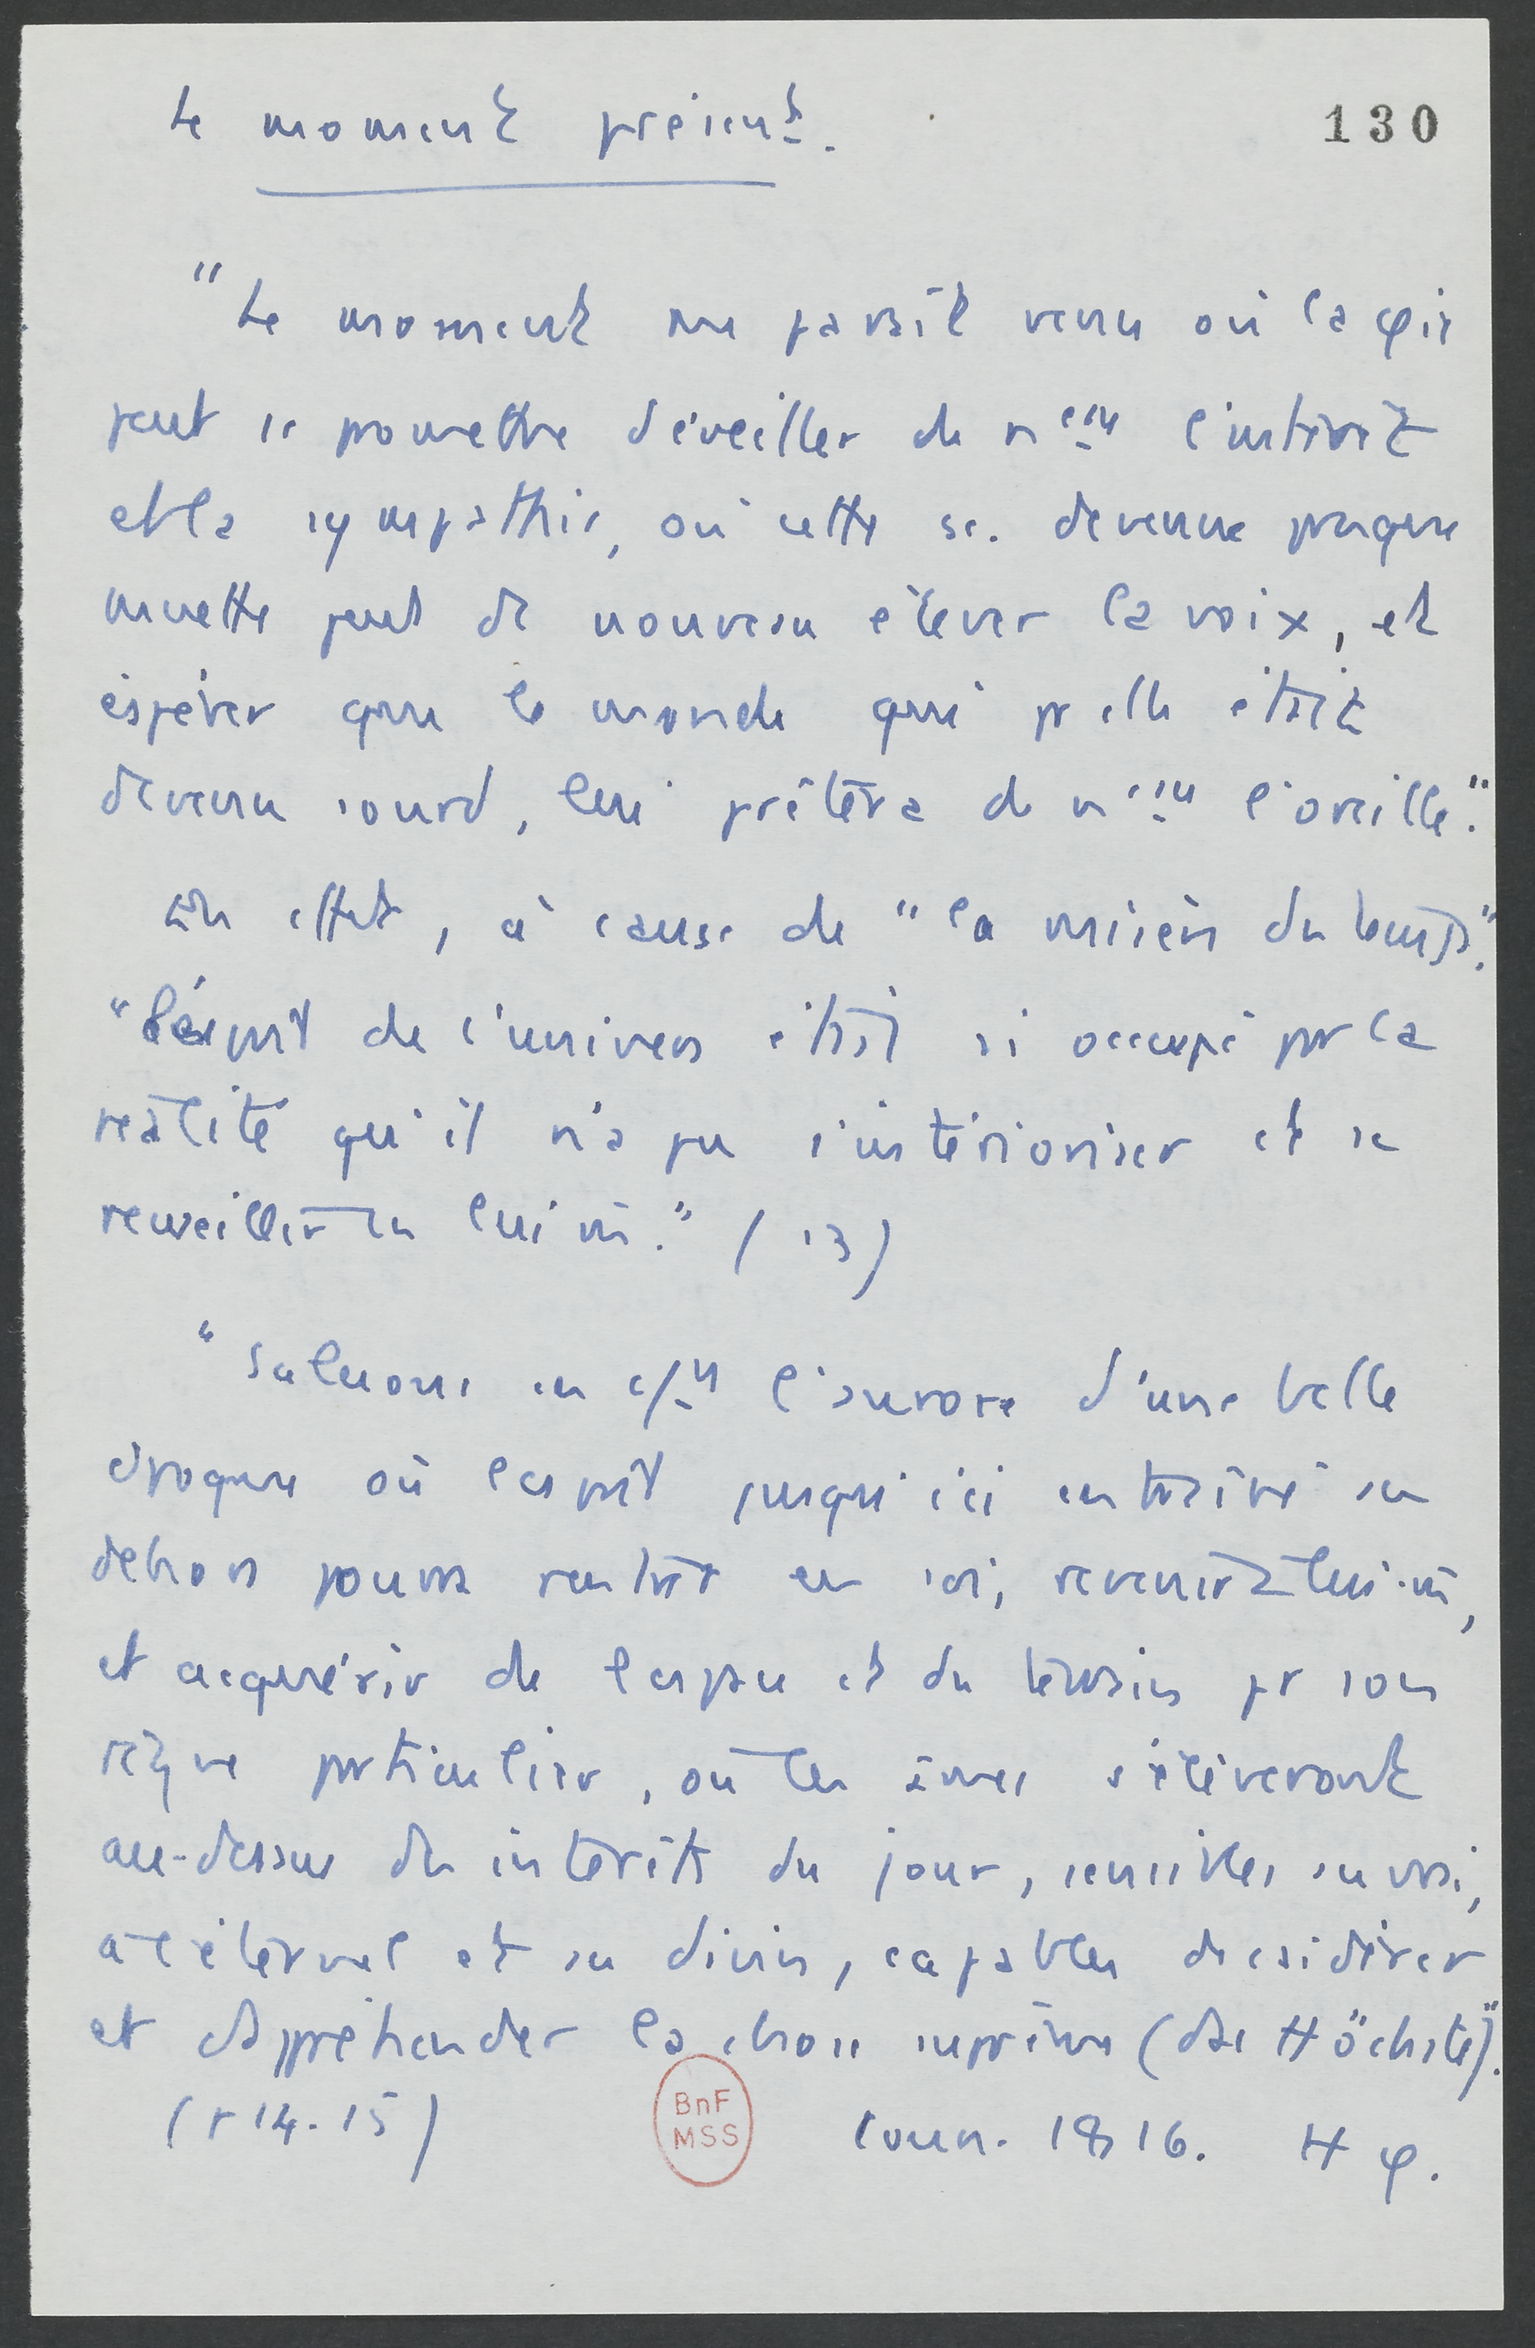 Le moment présent.
130
"Le moment me paraît venu où la φie
peut se promettre d'éveiller de nveau l'intérêt
et la sympathie, où cette sc. devenue presque
muette peut de nouveau élever la voix, et
espérer que le monde qui pr elle était
devenu sourd, lui prêtera de nveau l'oreille."
En effet, à cause de "la misère du temps".
"L'esprit de l'univers était si occupé par la
réalité qu'il n'a pu s'intérioriser et se
recueillir en lui m." (13)
"Saluons en c/ l'aurore d'une belle
époque où l'esprit jusqu'ici entraîné au
dehors pourra rentrer en soi, revenir à lui-m,
et acquérir de l'espace et du terrain pr son
règne particulier, où les âmes s'élèveront
au-dessus des intérêts du jour, sensibles au vrai,
à l'éternel et au divin, capables de csidérer
et d'appréhender la chose suprême (das Höchste)".
(p 14-15)
BnF
MSS
Cours. 1816. H φ.